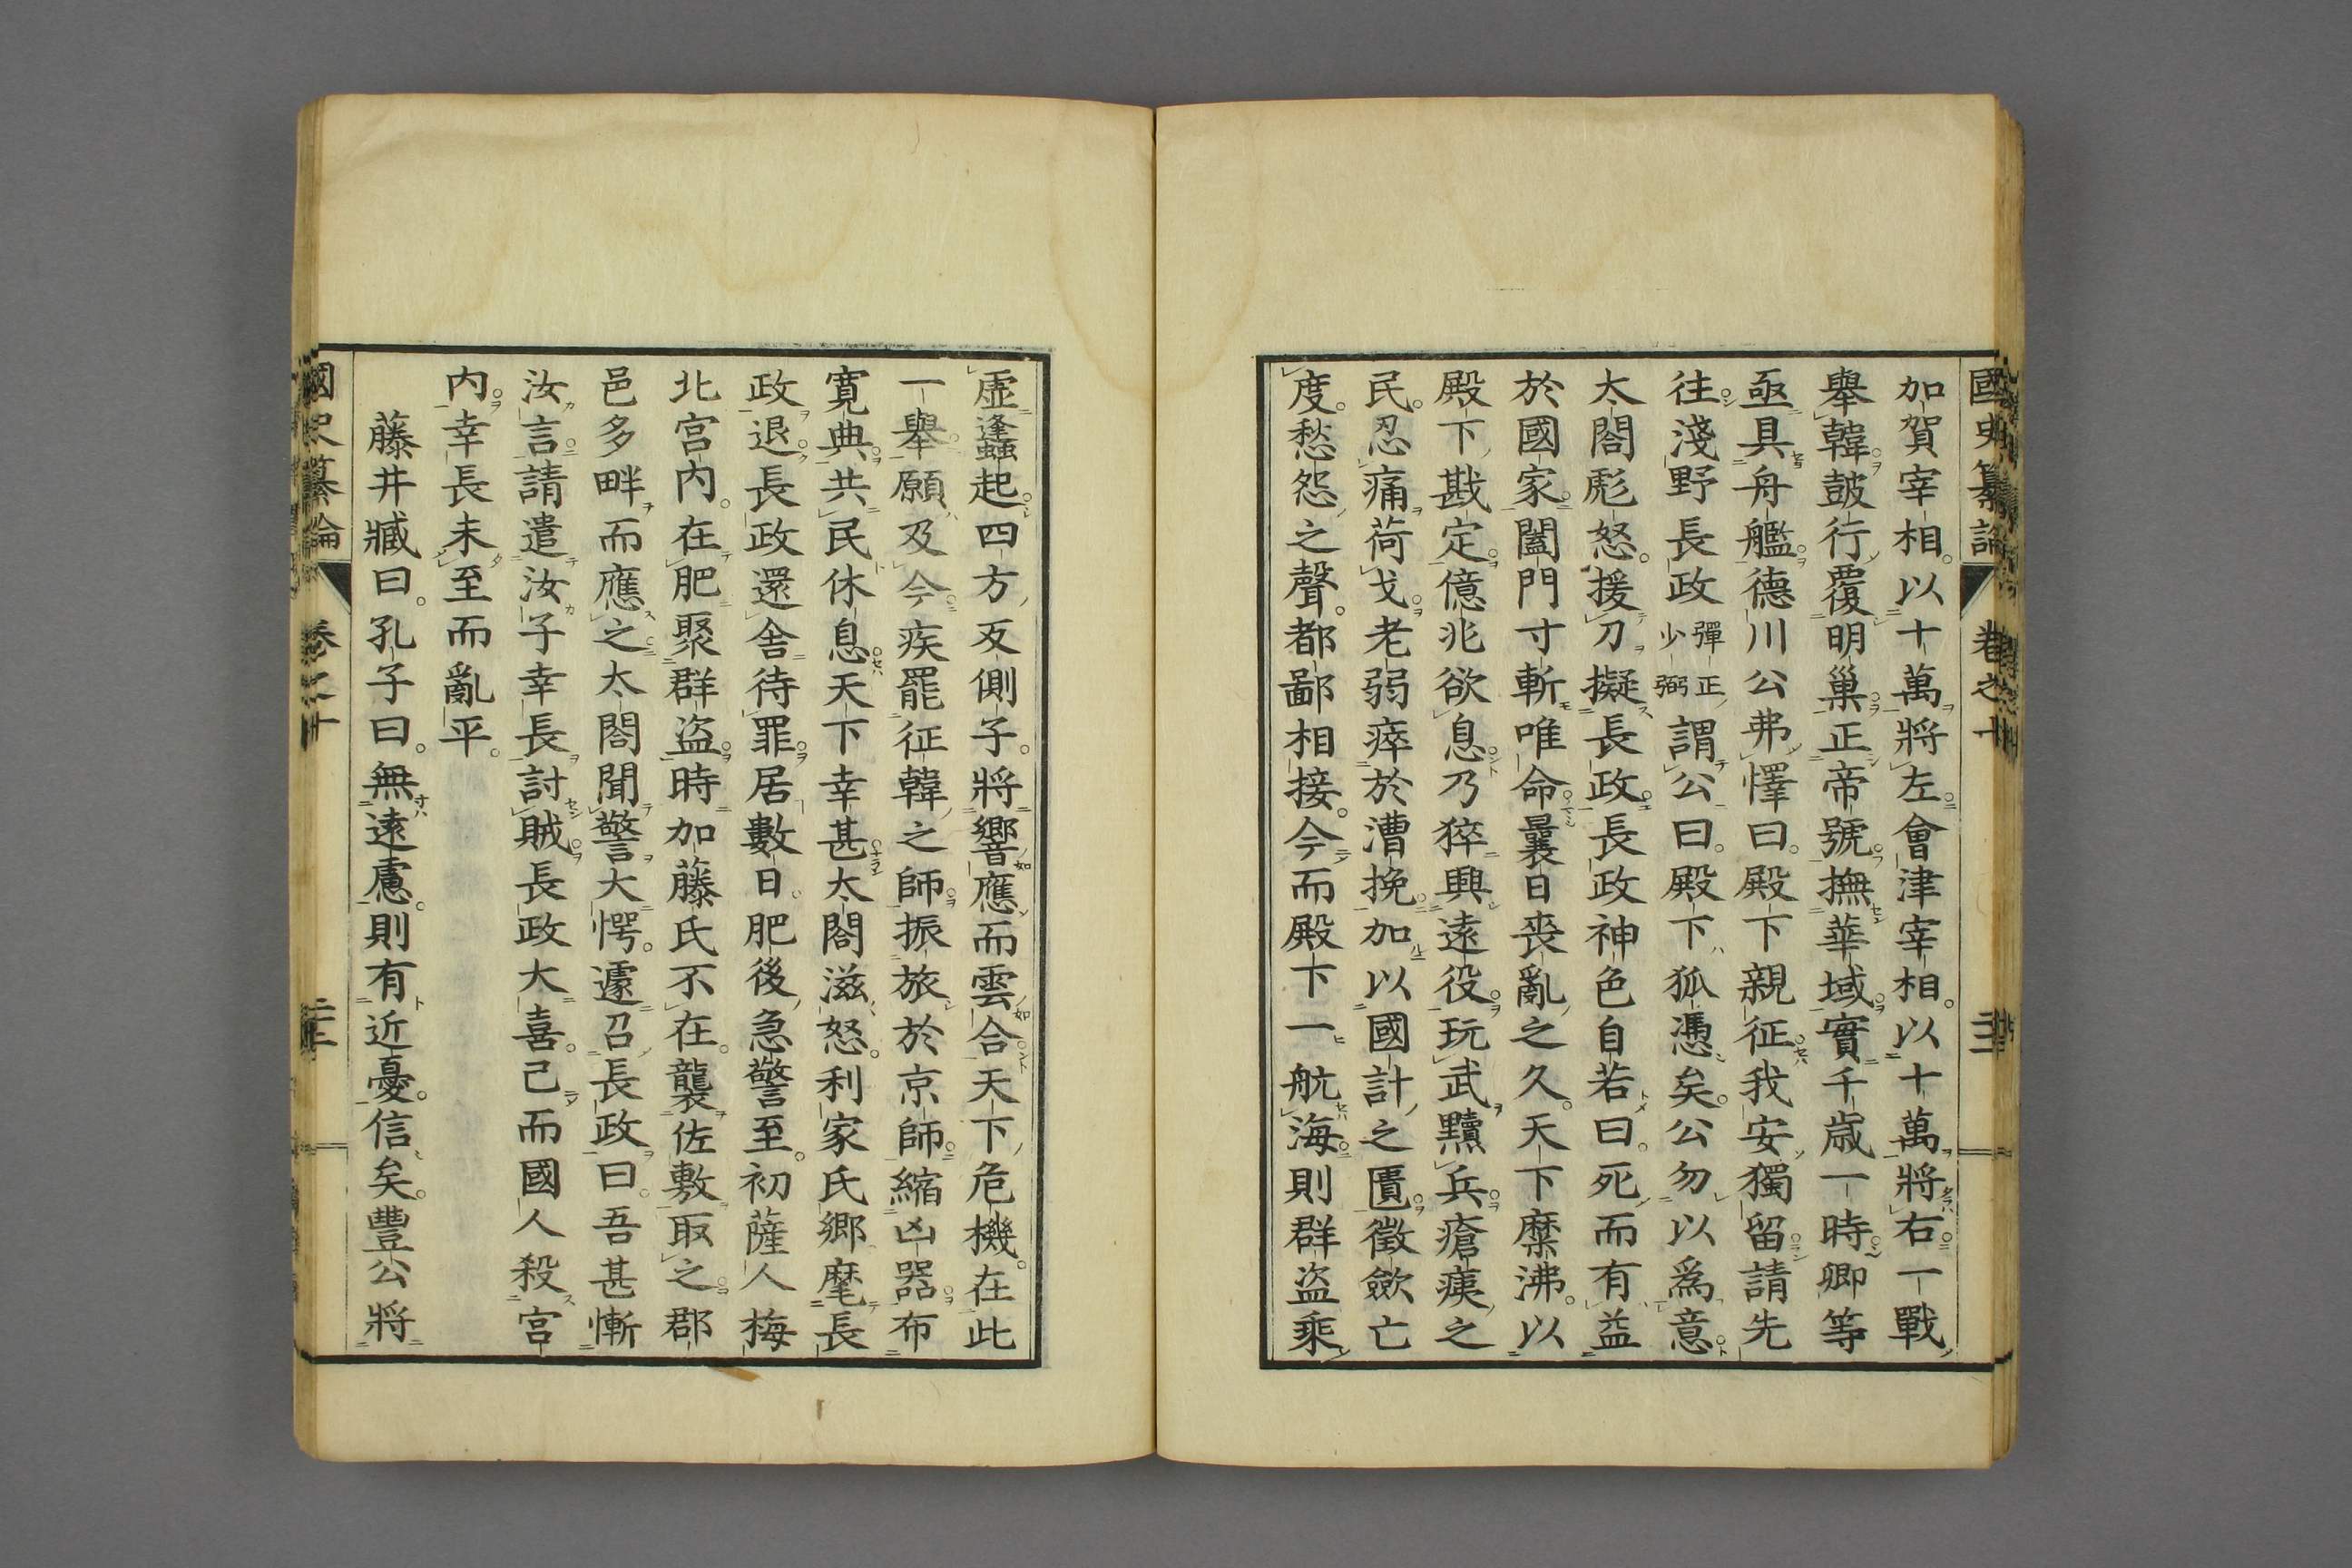 國史纂論 卷之十
加賀宰相。以十萬將左。會津宰相。以十萬將右。一戰
舉韓。鼓行覆明巢。正帝號。撫華域。實千歲一時。卿等
亟具舟艦。德川公弗懌曰。殿下親征。我安獨留。請先
往。淺野長政 彈正少弼 謂公曰。殿下狐憑矣。公勿以爲意。
太閤彪怒。援刀擬長政。長政神色自若曰。死而有益
於國家。闔門寸斬唯命。曩日喪亂之久。天下糜沸。以
殿下戡定。億兆欲息。乃猝興遠役。玩武黷兵。瘡痍之
民。忍痛荷戈。老弱瘁於漕挽。加以國計之匱。徵斂亡
度。愁怨之聲。都鄙相接。今而殿下一航海。則群盜乘
虛蠭起。四方反側子。將響應而雲合。天下危機。在此
一舉。願及今疾罷征韓之師。振旅於京師。縮凶器。布
寬典。共民休息。天下幸甚。太閤滋怒。利家氏鄉麾長
政退。長政還舍待罪。居數日。肥後急警至。初薩人梅
北宮内。在肥聚群盜。時加藤氏不在。襲佐敷取之。郡
邑多畔而應之。太閤聞警大愕。遽召長政曰。吾甚慚
汝言。請遣汝子幸長討賊。長政大喜。已而國人殺宮
内。幸長未至而亂平。
藤井臧曰。孔子曰。無遠慮。則有近憂。信矣。豐公將
國史纂論 卷之十